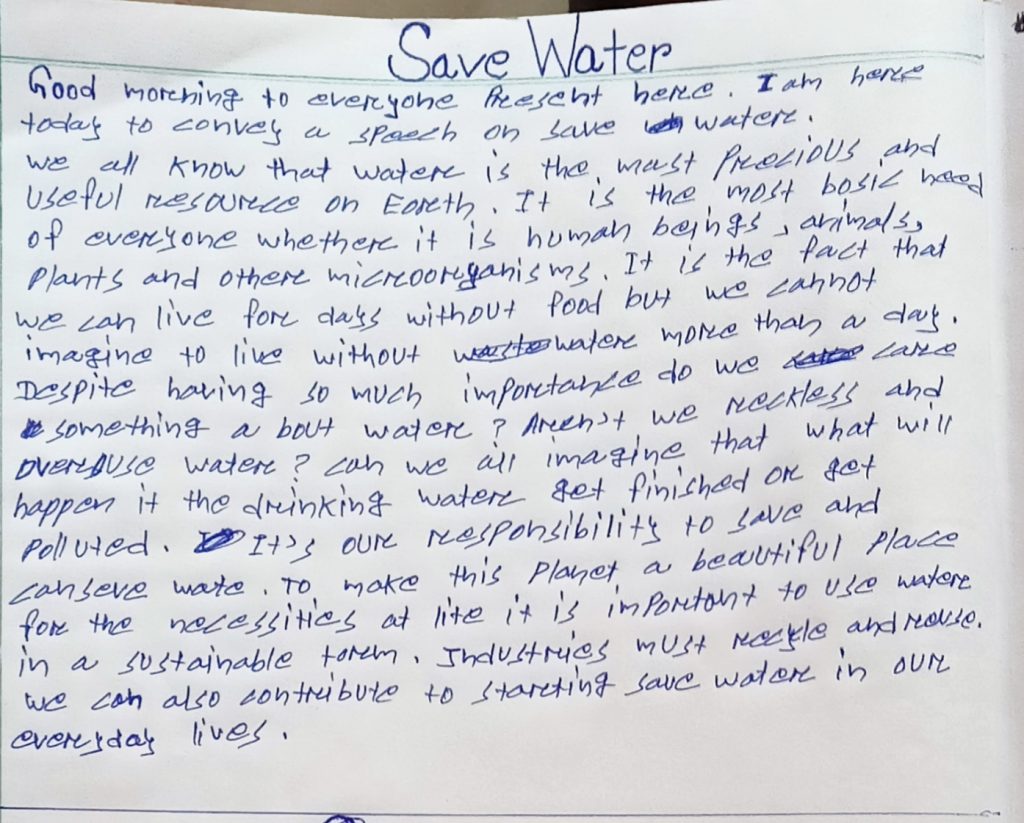 Save Water
Good morning to everyone Present here. I am here
today to convey a speech on save water.
we all know that water is the must Precious and
useful resource on Eareth. It is the most bosic need
of everyone whether it is human beings, animals,
Plants and other microorganisms. It is the fact that
we can live for days without food but we cannot
imagine to live without water more than a day.
Despite having so much importance do we care
something a bout water? Aren't we reckless and
overuse water? can we all imagine that what will
happen it the drinking water get finished or get
Polluted. It's our responsibility to save and
canseve wate. To make this Planet a beautiful Place
for the necessities at lite it is important to use water
in a sustainable torem. Industries must recycle and reuse.
we can also contribute to starting save water in our
everyday lives.